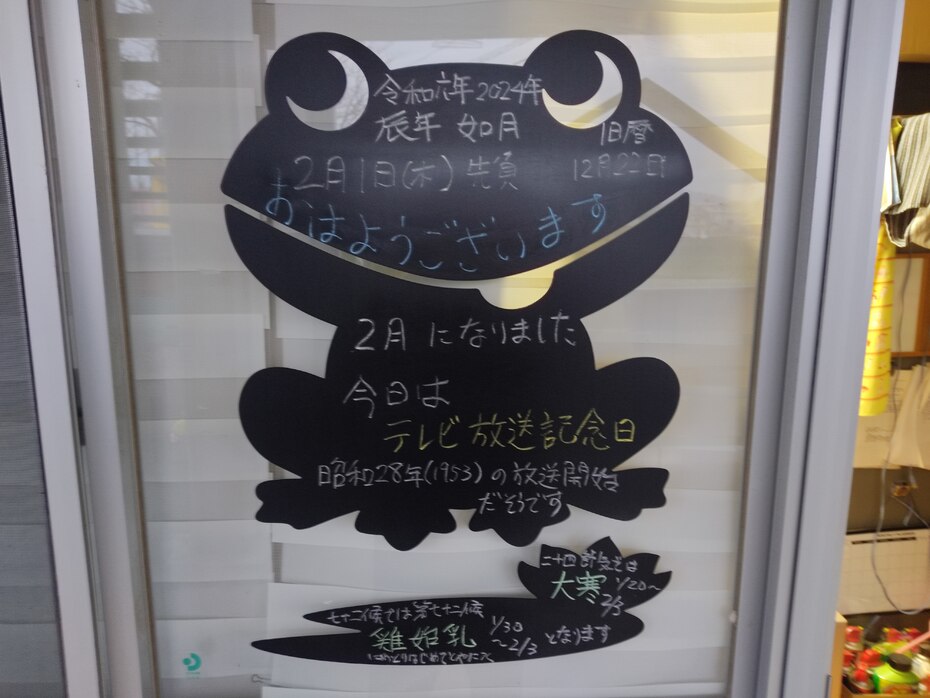 令和六年 2024年
辰年 如月 旧暦
2月1日(木) 先負 12月22日
おはようございます
2月になりました
今日は
テレビ放送記念日
昭和28年(1953)の放送開始
だそうです
二十四節気では
大寒 1/20~
2/3
七十二候では第七十二候
雞始乳 1/30
~2/3 となります
にわとりはじめてとやにつく